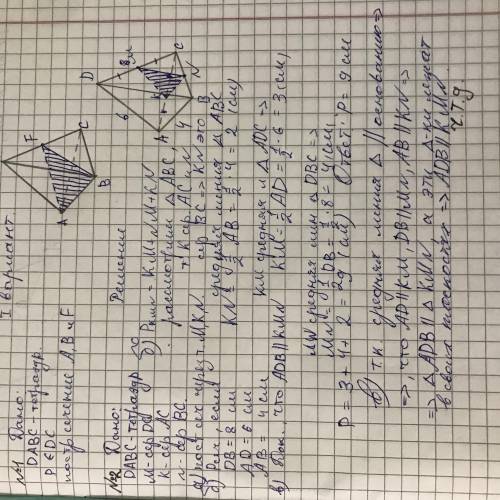 I вариант
№1 Дано:
DABC - тетраэдр.
P ∈ DC
построчение A, B и F
A
B
C
F
№2 Дано:
DABC - тетраэдр
M - сер DC
K - сер AC
N - сер BC.
а) постр сеч через т. M, K, N
б) Pсеч, если
DB = 8 см
AD = 6 см
AB = 4 см
в) Док., что ADB || KMN
D
A
B
C
N
K
M
6
4
Решение
б) Pкмн = KM + NM + KN
рассмотрим △ABC,
т. K сер. AC и N
сер BC => KN это
средняя линия △ABC
KN = ½ AB = ½ · 4 = 2 (см)
KM средняя л △ADC =>
KM = ½ AD = ½ · 6 = 3 (см)
MN средняя лин △DBC =>
MN = ½ DB = ½ · 8 = 4 (см)
P = 3 + 4 + 2 = 9 (см) Ответ: P = 9 см
в) т.к средняя линия △ || основанию =>
=>, что AD || KM, DB || MN, AB || KN =>
=> △ADB || △KMN, а эти △-ки лежат
в своих плоскостях => ADB || KMN
ч.т.д.